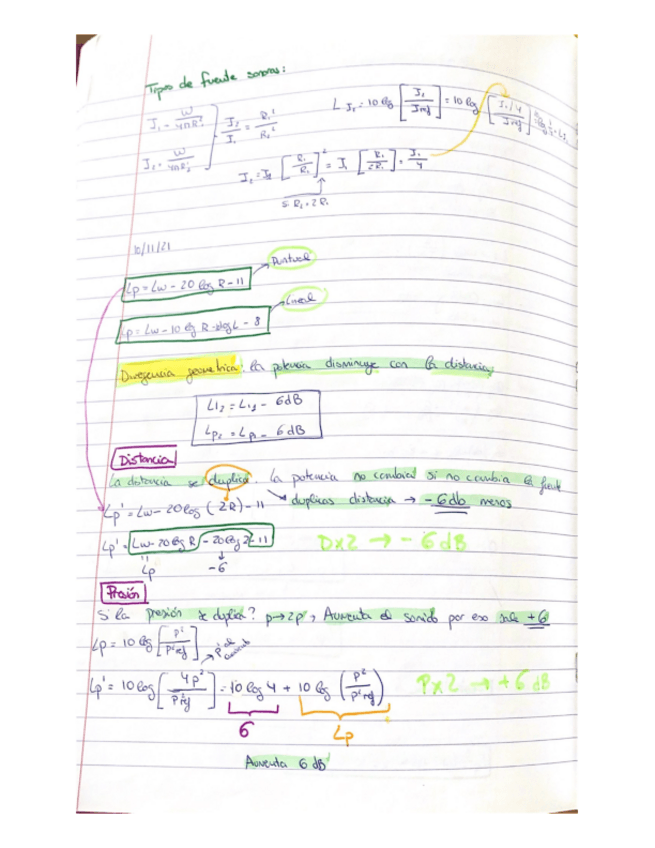 Tipos de fuente sonoras:
J₁ = W / 4πR₁²
J₂ = W / 4πR₂²
J₂ / J₁ = R₁² / R₂²
L J₂ = 10 log [J₂ / Jref] = 10 log [J₁/4 / Jref]
J₂ = J₁ [R₁ / R₂]² = J₁ [R₁ / 2R₁]² = J₁ / 4
si R₂ = 2R₁
10/11/21
Lp = Lw - 20 log R - 11 → Puntual
Lp = Lw - 10 log R - 10 log L - 8 → Lineal
Divergencia geometrica: la potencia disminuye con la distancia
LI₂ = LI₁ - 6dB
Lp₂ = Lp₁ - 6dB
Distancia
La distancia se duplica. La potencia no cambia si no cambia la fuente
Lp' = Lw - 20 log (2R) - 11
duplicas distancia → - 6db menos
Lp' = Lw - 20 log R - 20 log 2 - 11
D x 2 → - 6 dB
Lp
-6
Presión
Si la presión se duplica? p→2p, Aumenta el sonido por eso sale +6
Lp = 10 log [p² / p²ref]
Lp' = 10 log [4p² / p²ref] = 10 log 4 + 10 log (p² / p²ref)
P x 2 → + 6 dB
6
Lp
Aumenta 6 dB